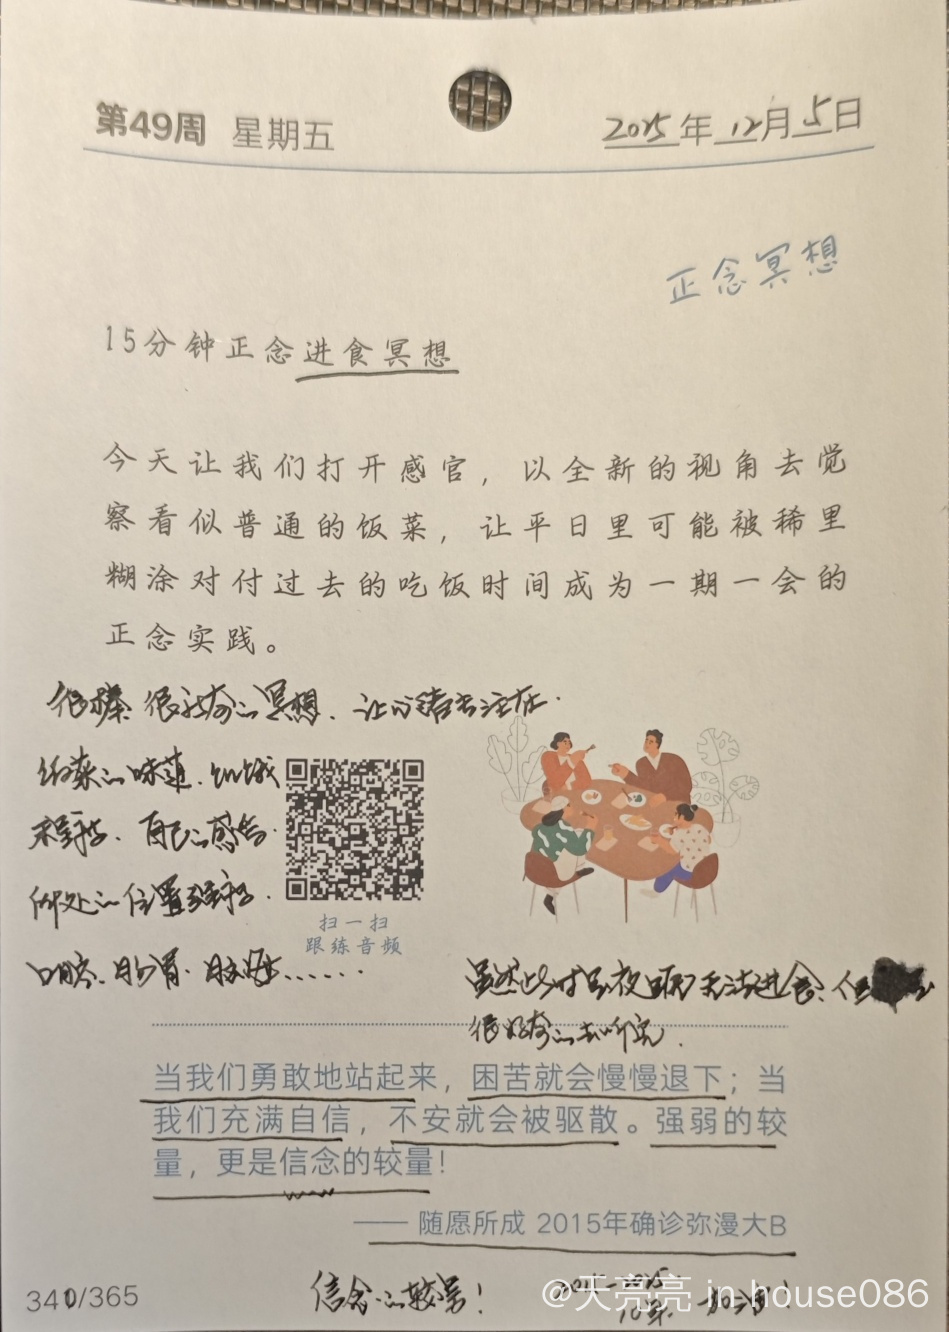 第49周 星期五 2025年12月5日
正念冥想
15分钟正念进食冥想
今天让我们打开感官，以全新的视角去觉
察看似普通的饭菜，让平日里可能被稀里
糊涂对付过去的吃饭时间成为一期一会的
正念实践。
很棒 很好奇的冥想、让心绪专注在
饭菜的味道、饥饿
程度、自己的感告
所处的位置
口腔、
扫一扫
跟练音频
虽然此时 无法进食、但
很好奇的去听完.
当我们勇敢地站起来，困苦就会慢慢退下；当
我们充满自信，不安就会被驱散。强弱的较
量，更是信念的较量！
—— 随愿所成 2015年确诊弥漫大B
信念的较量！
2015-2025
10年 加油！
340/365
@天亮亮 in-house086